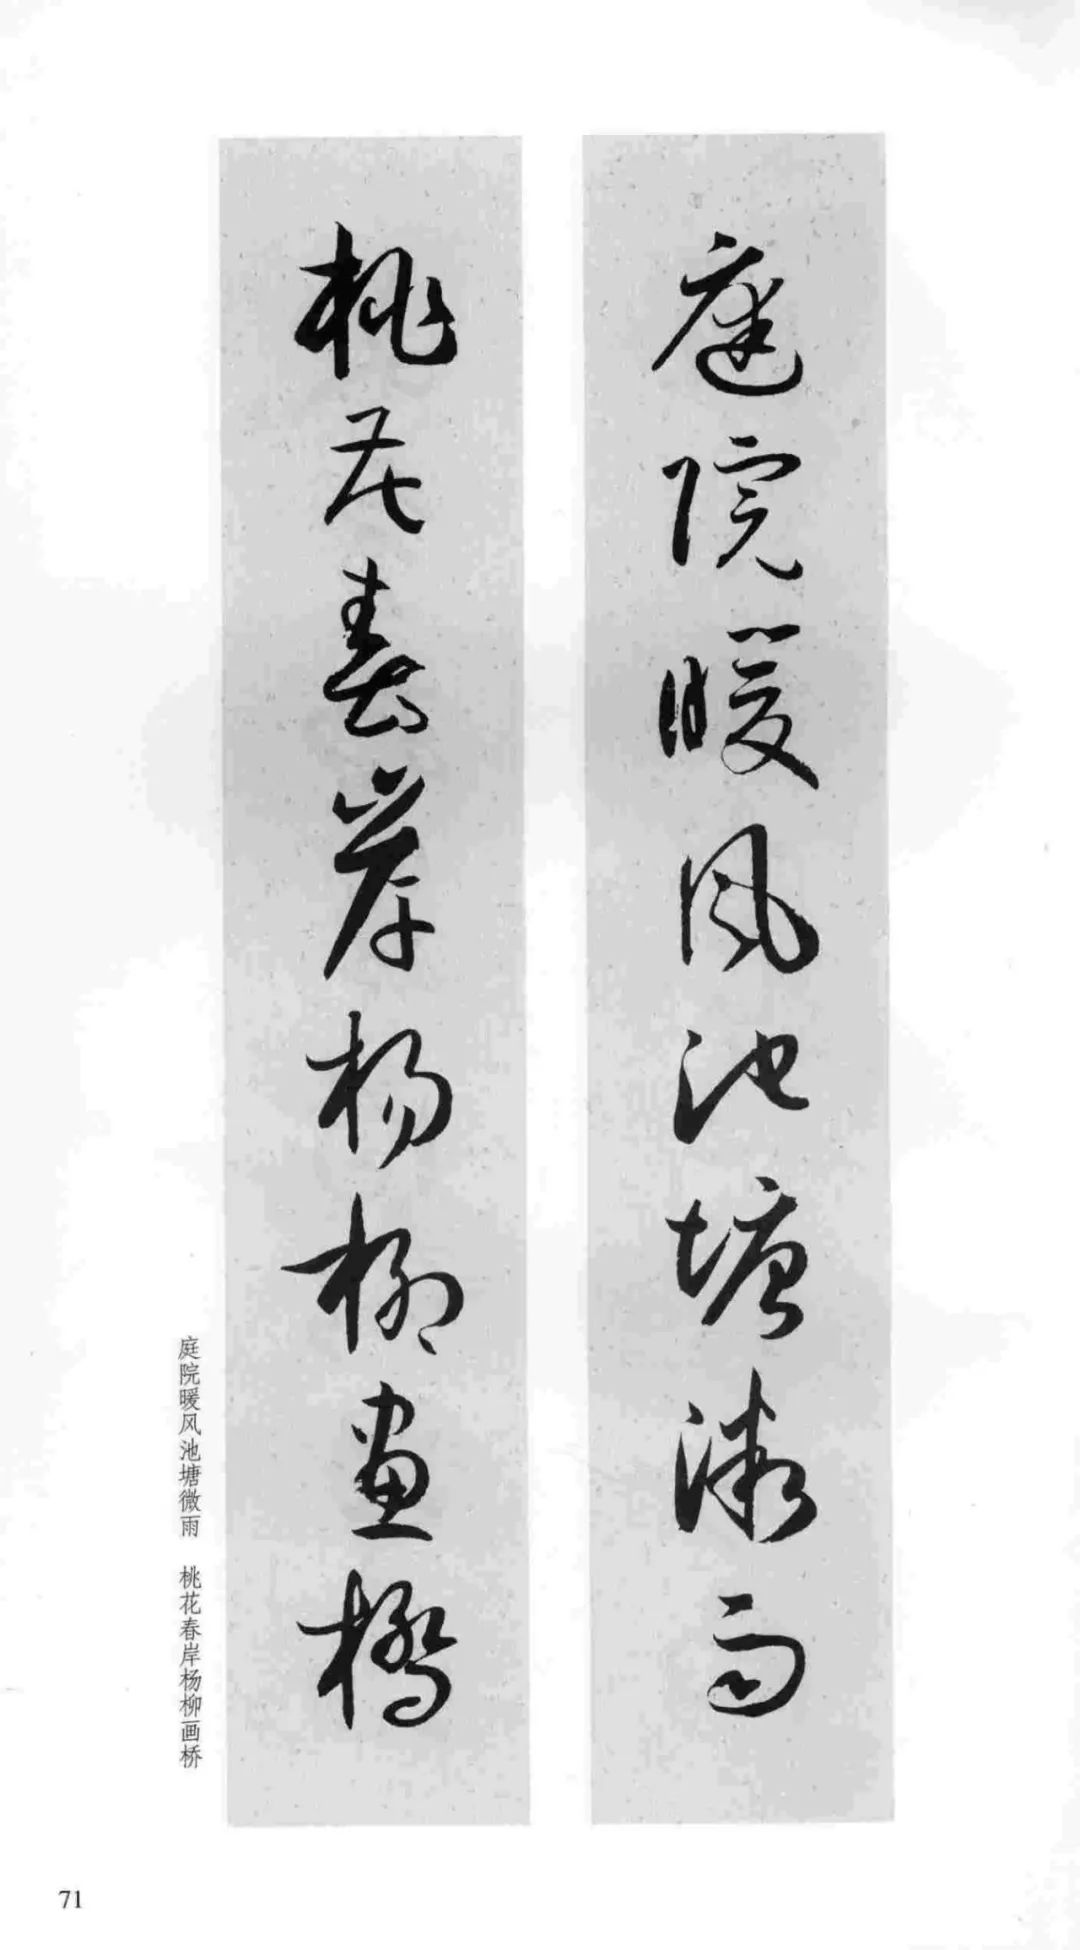 庭院暖风池塘微雨
桃花春岸杨柳画桥
庭院暖风池塘微雨 桃花春岸杨柳画桥
71